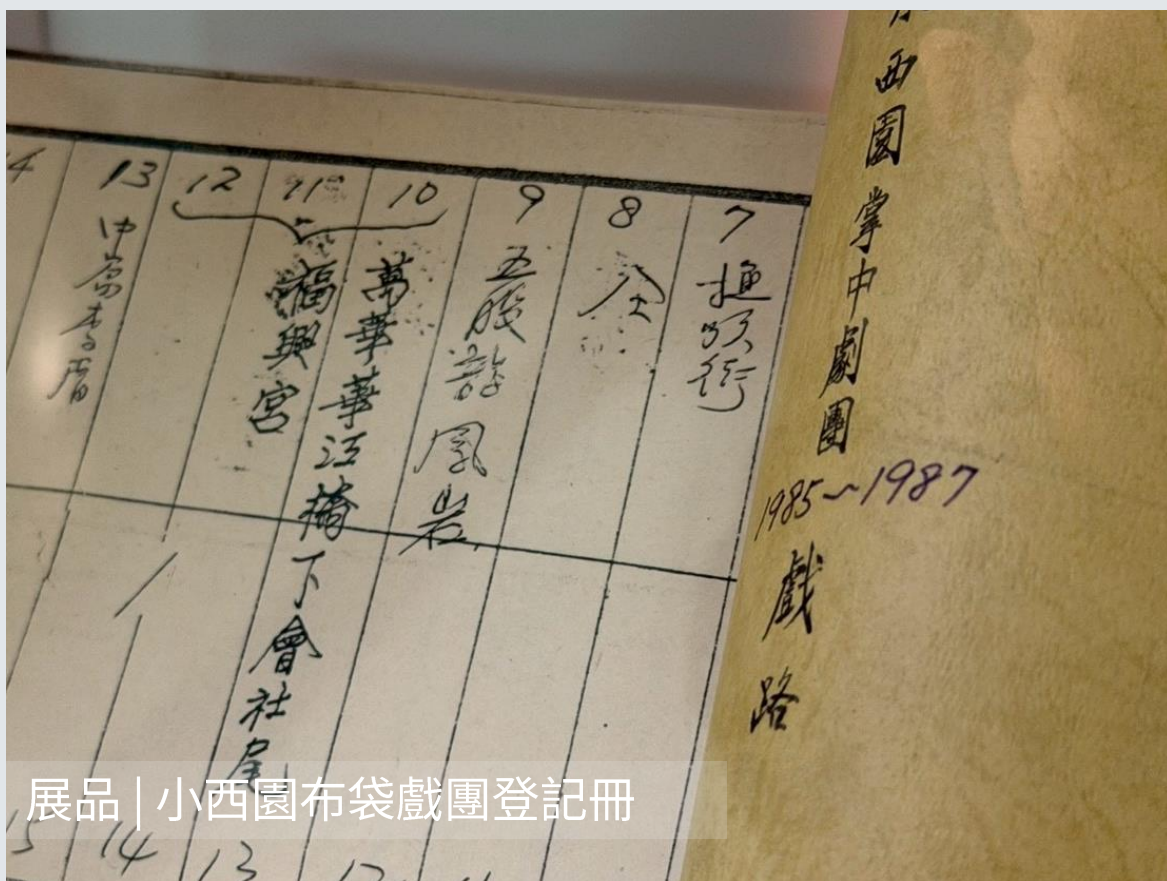 小西園掌中劇團
1985~1987
戲路
7 樹頭街
8 仝
9 五股諄鳳岩
10 萬華華江橋下會社尾
11 福興宮
12
13 中崙李厝
14
12
13
14
15
展品 | 小西園布袋戲團登記冊